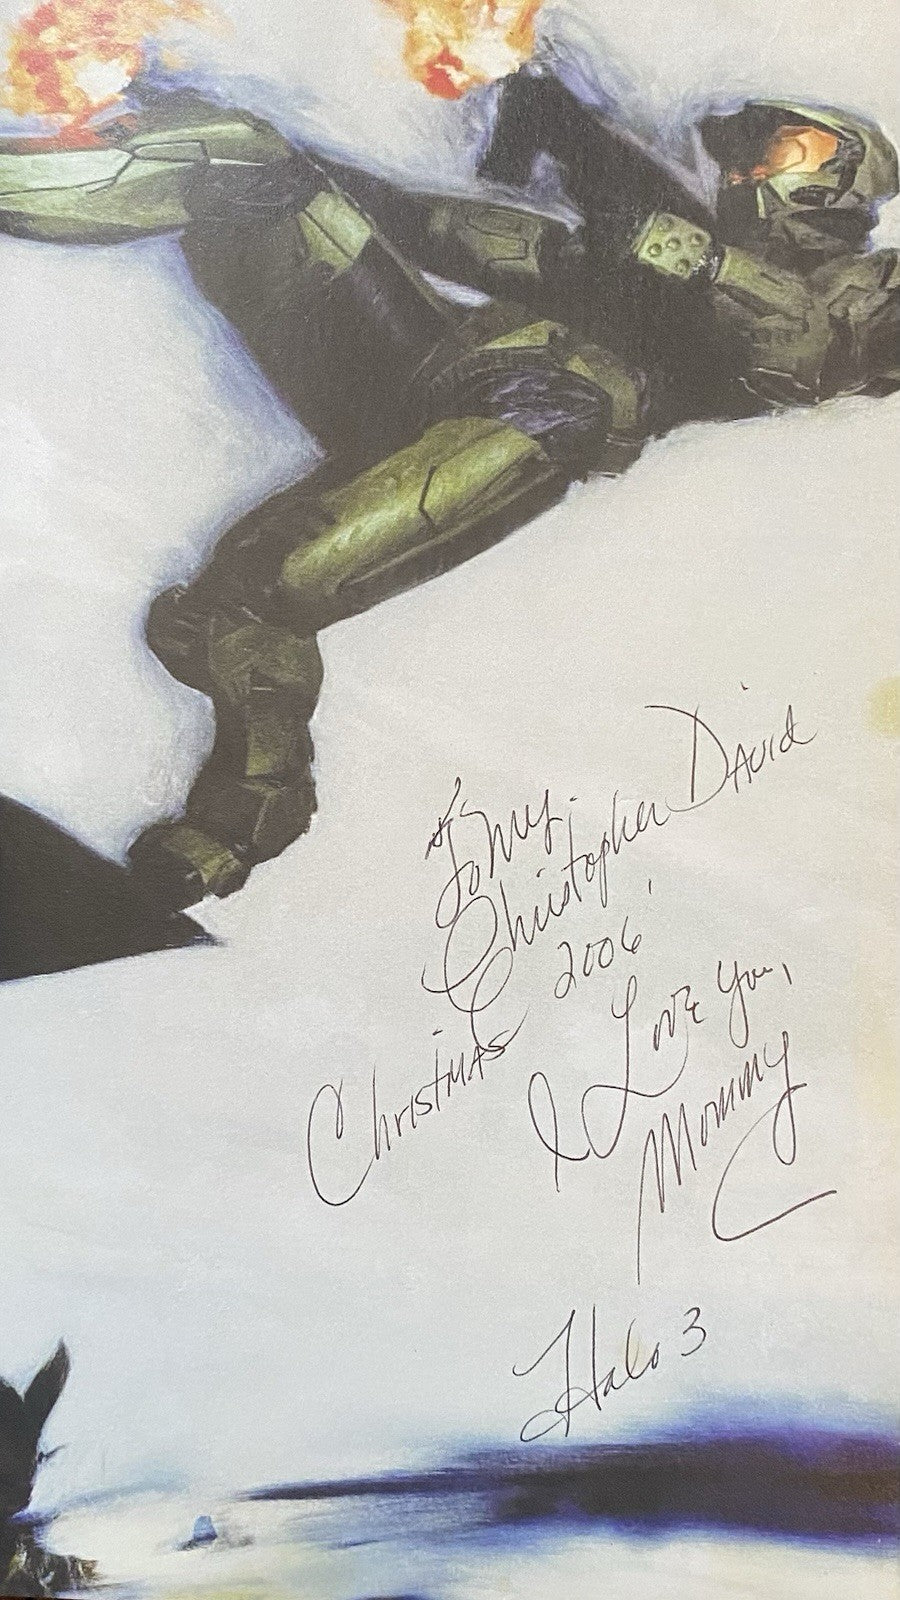 To My
Christopher David
Christmas 2006,
I Love You,
Mommy
Halo 3